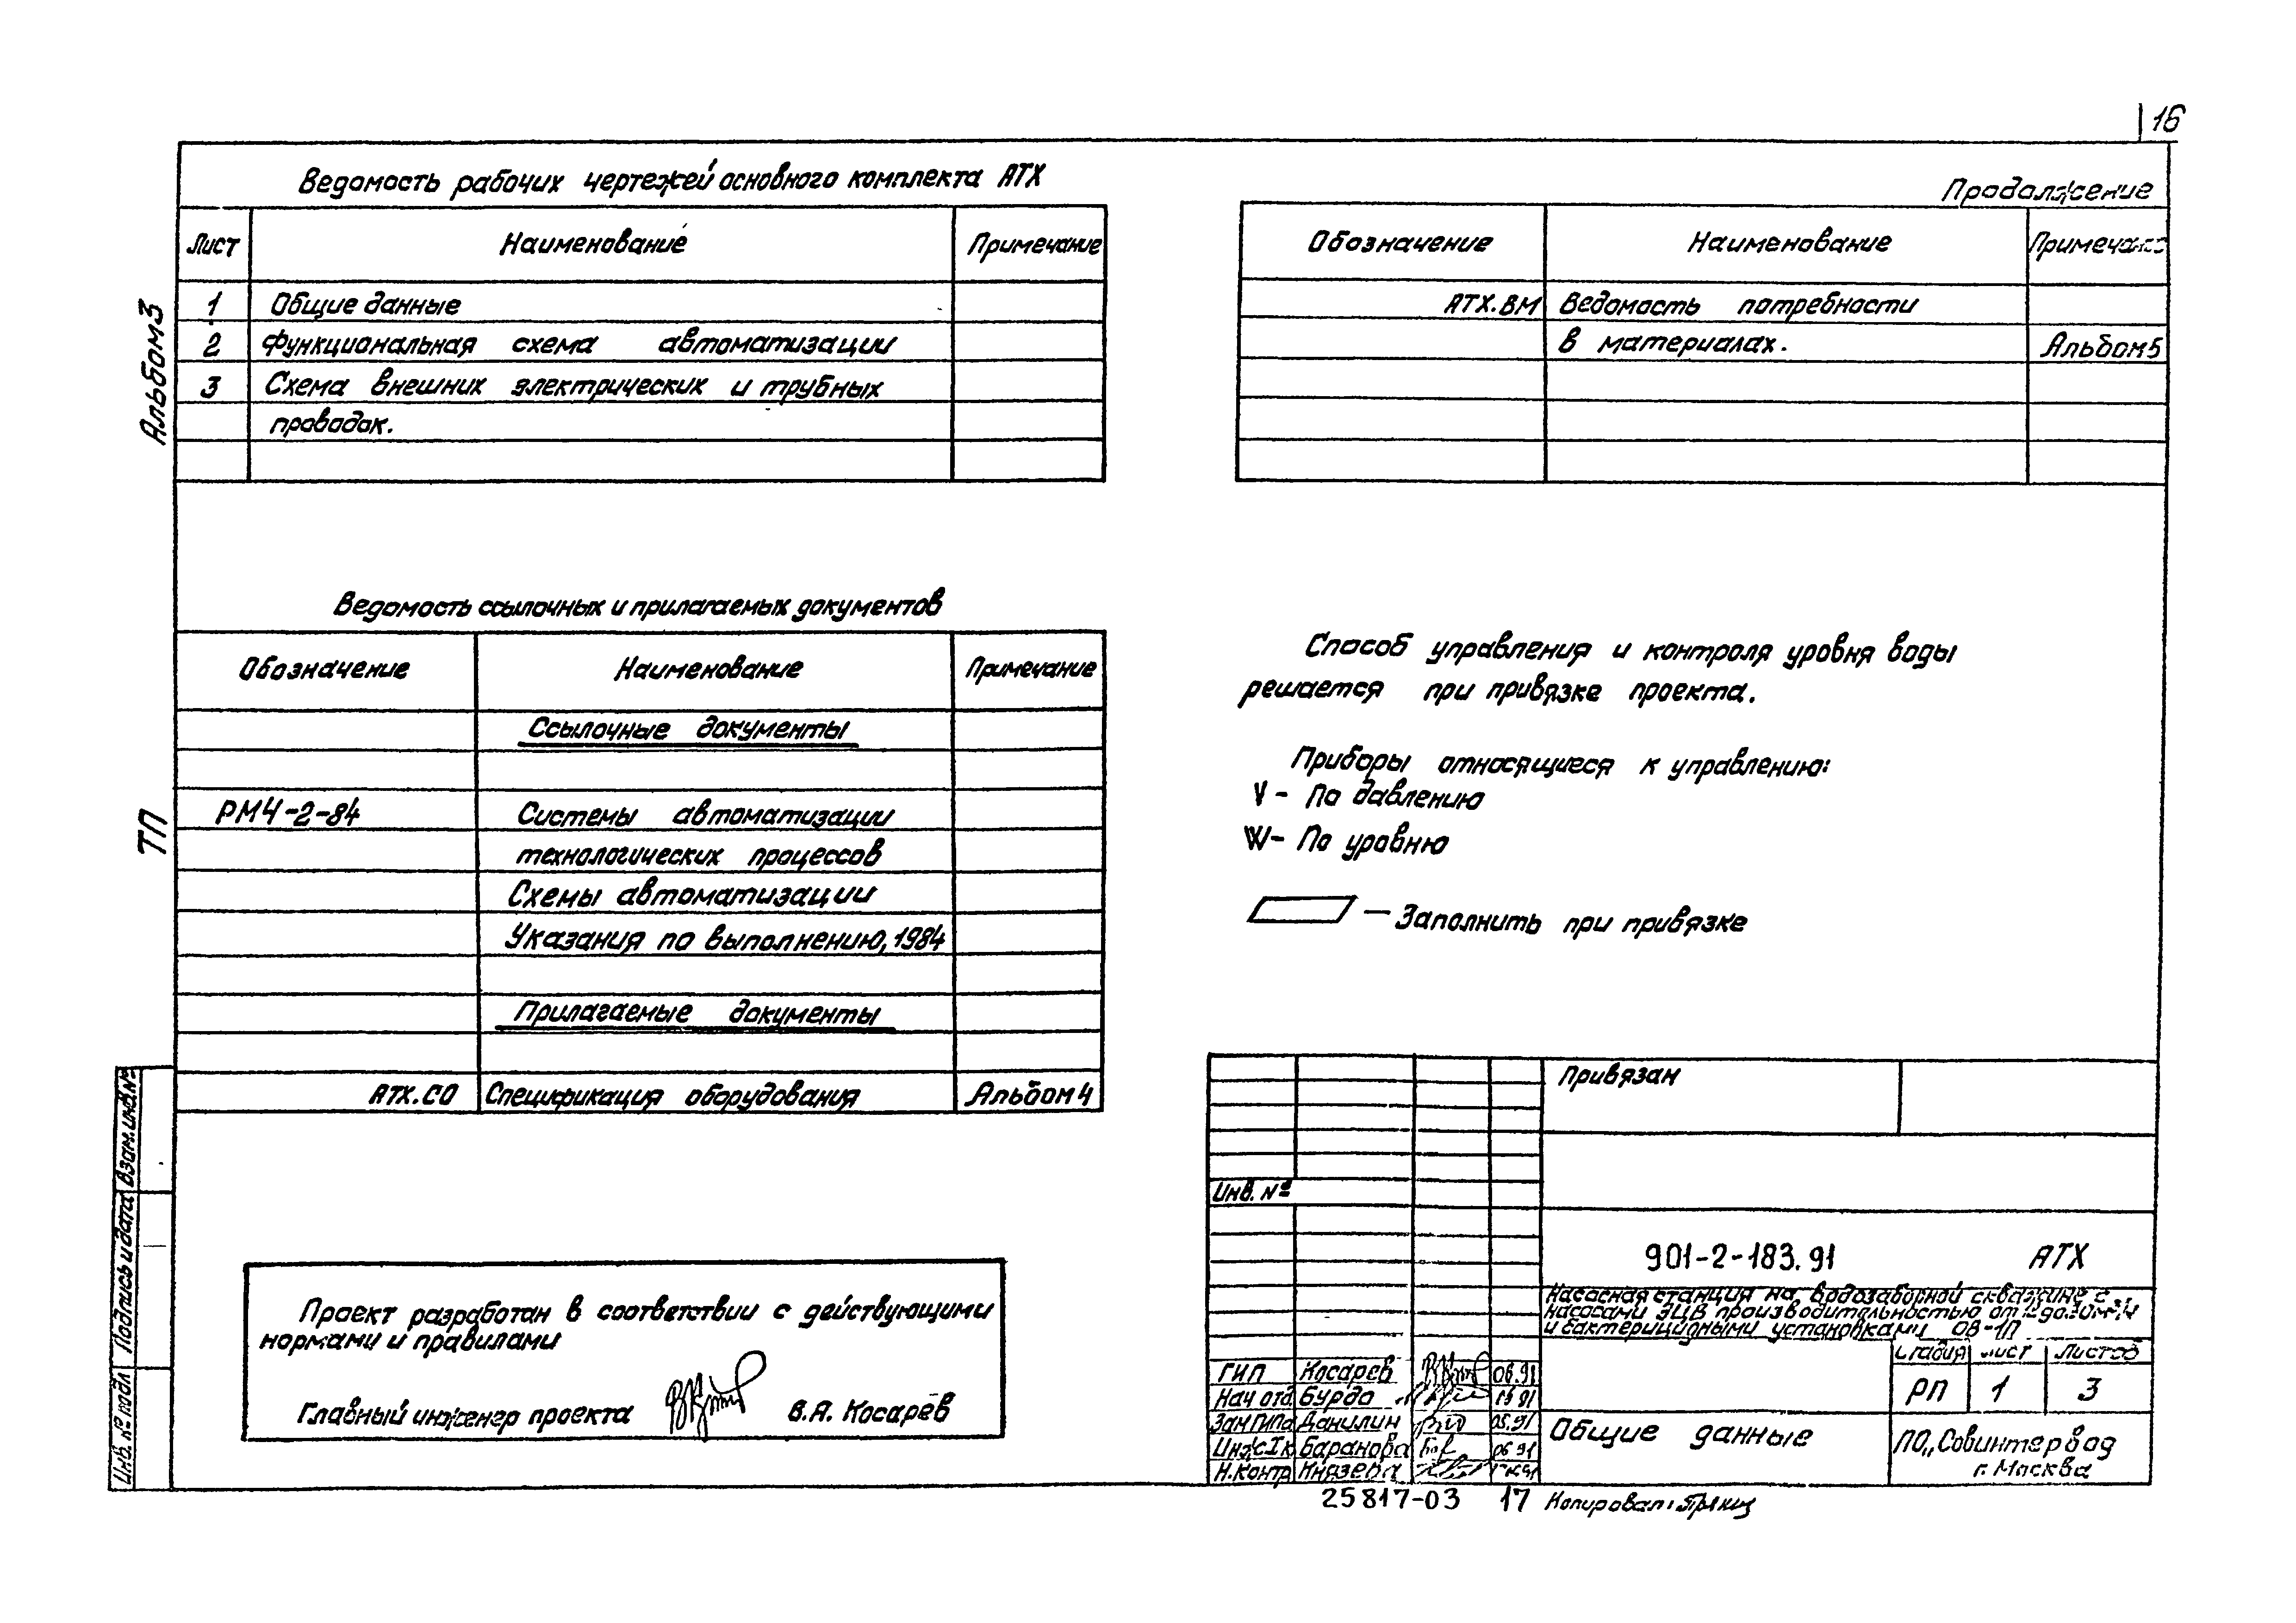 16
Ведомость рабочих чертежей основного комплекта АТХ
Лист Наименование Примечание
1 Общие данные
2 Функциональная схема автоматизации
3 Схема внешних электрических и трубных
проводок.
Продолжение
Обозначение Наименование
АТХ.ВМ Ведомость потребности
в материалах. Альбом 5
Альбом 3
ТП
Ведомость ссылочных и прилагаемых документов
Обозначение Наименование Примечание
Ссылочные документы
РМ4-2-84 Системы автоматизации
технологических процессов
Схемы автоматизации
Указания по выполнению, 1984
Прилагаемые документы
АТХ.СО Спецификация оборудования Альбом 4
Способ управления и контроля уровня воды
решается при привязке проекта.
Приборы относящиеся к управлению:
V - По давлению
W - По уровню
— Заполнить при привязке
Проект разработан в соответствии с действующими
нормами и правилами
Главный инженер проекта В.А. Косарев
Взам. инв. №
Подпись и дата
Инв. № подл
Привязан
Инв. №
901-2-183.91 АТХ
Насосная станция на водозаборной скважине с
насосами ЭЦВ производительностью от
и бактерицидными установками ОВ-1П
Стадия Лист Листов
РП 1 3
ГИП Косарев 06.91
Нач отд. Бурда
Зам ГИПа Данилин
Инж I к Баранова 06 91
Н.контр Князева
Общие данные
ПО „Совинтервод
г. Москва
25817-03 17 Копировал: